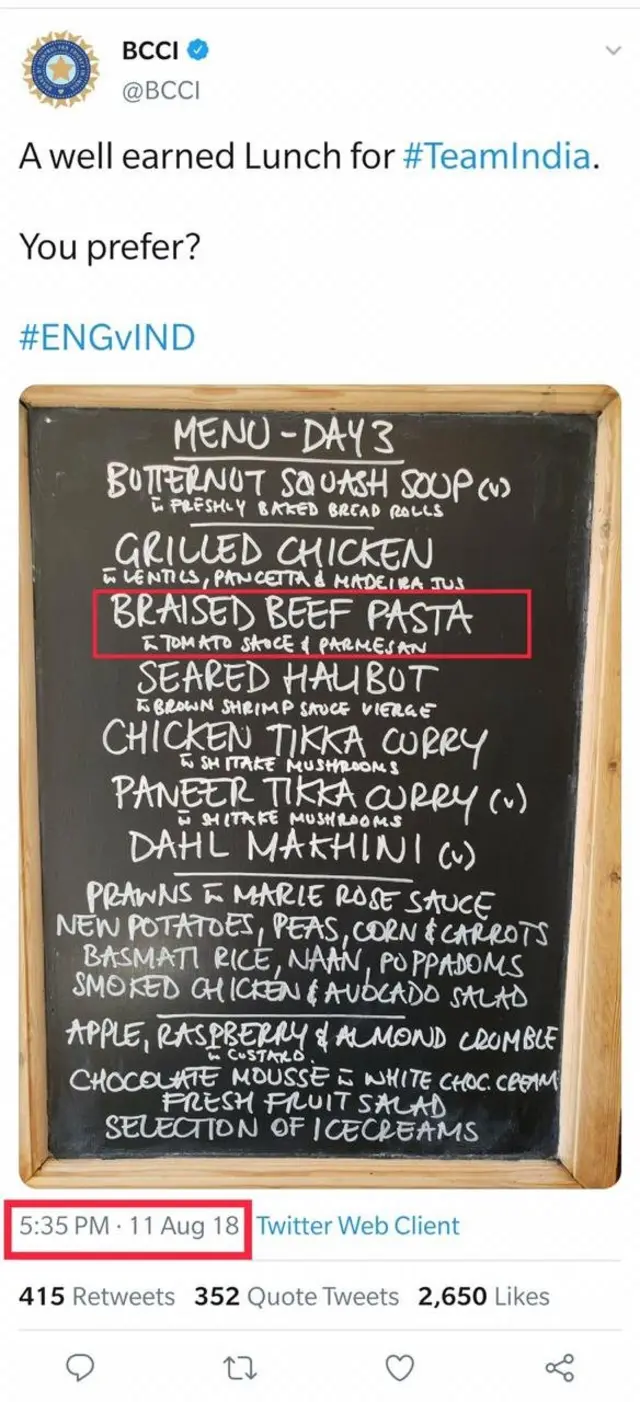 BCCI
@BCCI
A well earned Lunch for #TeamIndia.
You prefer?
#ENGvIND
MENU - DAY 3
BUTTERNUT SQUASH SOUP (v)
w FRESHLY BAKED BREAD ROLLS
GRILLED CHICKEN
w LENTILS, PANCETTA & MADEIRA JUS
BRAISED BEEF PASTA
w TOMATO SAUCE & PARMESAN
SEARED HALIBUT
w BROWN SHRIMP SAUCE VIERGE
CHICKEN TIKKA CURRY
w SHITAKE MUSHROOMS
PANEER TIKKA CURRY (v)
w SHITAKE MUSHROOMS
DAHL MAKHINI (v)
PRAWNS w MARIE ROSE SAUCE
NEW POTATOES, PEAS, CORN & CARROTS
BASMATI RICE, NAAN, POPPADOMS
SMOKED CHICKEN & AVOCADO SALAD
APPLE, RASPBERRY & ALMOND CRUMBLE
w CUSTARD.
CHOCOLATE MOUSSE w WHITE CHOC. CREAM
FRESH FRUIT SALAD
SELECTION OF ICECREAMS
5:35 PM · 11 Aug 18 Twitter Web Client
415 Retweets 352 Quote Tweets 2,650 Likes